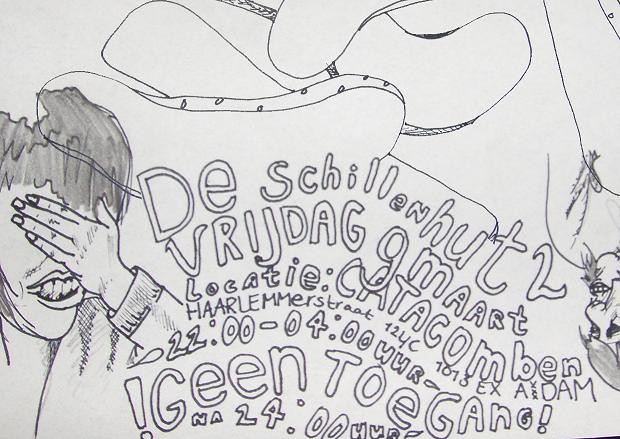 De Schillenhut 2
VRIJDAG 9 MAART
Locatie: CATACOMben
HAARLEMMerstraat 124C 1013 EX A'DAM
22:00-04:00 uur-
!Geen ToeGAnG!
NA 24:00uur-